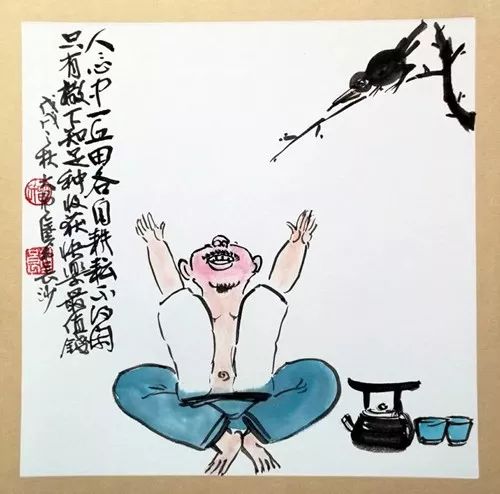 人心中一丘田各自耕耘不得闲
只有撒下知足种收获快乐最值钱
戊戌之秋大长沙